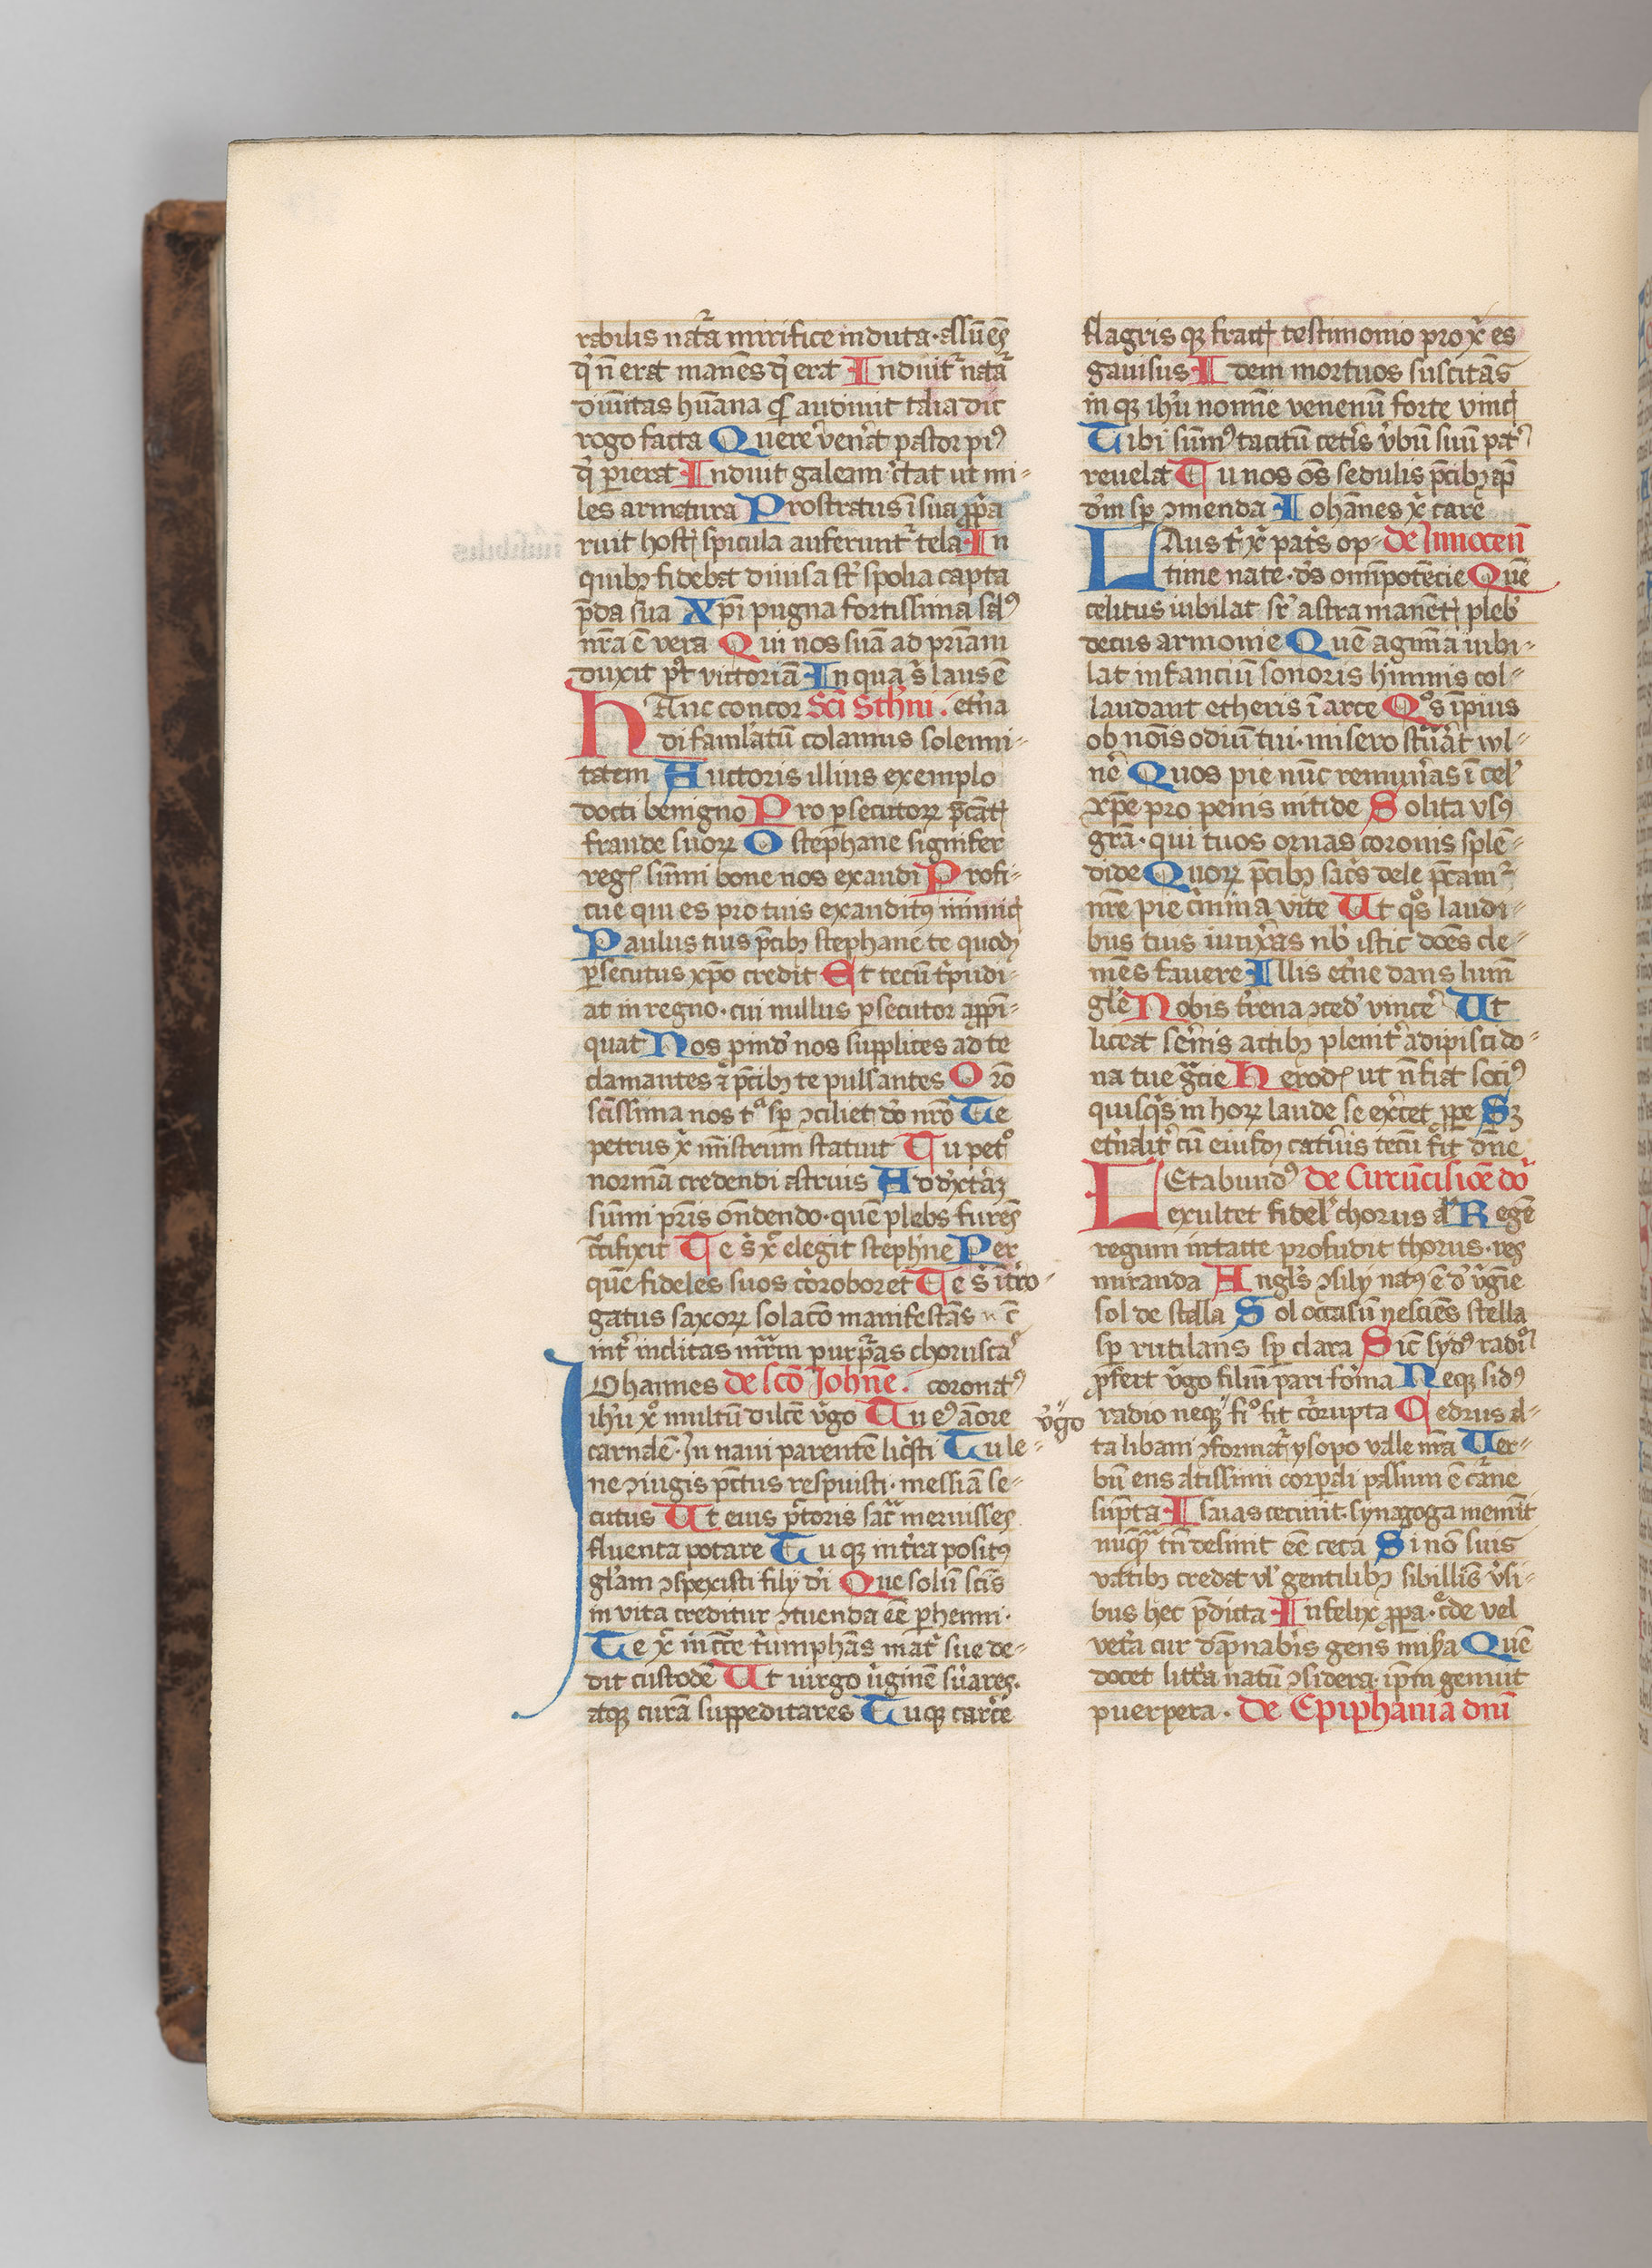 rabilis nat̃a mirifice induta · assūēs
q̃ n̄ erat manēs q̃ erat Induit᷑ nat̃a
diuītas hūana Quis audiuit talia dic
rogo facta Quere᷑ ven̾at pastor pi᷒
q̃ perierat Induit galeam c̾tat ut mi-
les armatura Prostratus ī sua ꝓp̃a
ruit hostꝭ spicula auferunt᷑ tela In
quibꝫ fidebat diuisa st̃ spolia capta
p̄da sua Xp̄i pugna fortissima sal᷒
nr̄a ē vera Qui nos suā ad pr̄iam
duxit pꝰt victoriā In qua s̾ laus ē
hAnc concor Sc̄i Steph̄ni . et̾na
di famlatū colamus solemni-
tatem Auctoris illius exemplo
docti benigno Pro ꝑsecutoꝝ p̄cātꝭ
fraude suoꝝ O stephane signifer
regꝭ sūmi bone nos exaudi Profi-
cue qui es pro tuis exauditꝰ inimicꝭ
Paulus tuis p̄cibꝫ stephane te quodꝫ
ꝑsecutus xp̄o credit Et tecū t̾pudi-
at in regno · cui nullus ꝑsecutor appī-
quat Nos ꝓind̾ nos supplices ad te
clamantes ⁊ p̄cibꝫ te pulsantes Orō
scīssima nos tᵃ sꝑ ꝯciliet dō nr̄o Te
petrus x̄ mīstrum statuit Tu petᵒ
normā credendi astruis Ad d̾xt̾aꝫ
sūmi pr̄is on̄dendo · quē plebs furēs
c̾cifixit Te s̾ x̄ elegit stephn̄e Per
quē fideles suos c̾roboret Te s̾ īt̾ro-
gatus saxoꝝ solacō manifestās Nc̄
int̾ inclitas mr̄m purp̃as chorusca᷑
IOhannes de scō Joh̄ne . coronatᷣ
ih̾u xᵒ multū dilcē v̾go Tu eꝰ āore
carnalē · In naui parentē liq̾sti Tu le-
ne ꝯiugis pc̄tus respuisti · messiā se-
cutus Ut eius p̄toris sac̃ meruisses
fluenta potare Tuqꝫ in t̾ra positꝰ
gl̾am ꝯspexisti filij dī Que solū scīs
in vita creditur ꝯtuenda eē ꝑhenni ·
Te x̄ in c̾ce t̾umphās mat̾ sue de-
dit custodē Ut uirgo v̾ginē s̾uares ·
atqꝫ curā suppeditares Tuqꝫ carc̾e
flagris qꝫ fractꝰ testimonio pro x̄ es
gauisus Idem mortuos suscitās
in qꝫ ih̾u nomīe venenū forte vincꝭ
Tibi sūmꝰ tacitū cet̾is v̾bū suū pat̾
reuelat Tu nos oēs sedulis p̄cibꝫ ap̄
dm̄ sꝑ ꝯmenda Iohānes x̄ care
LAus t̾ x̄ pat̾s op- De Innocen̄
time nate · d̾s om̄ipotēcie Quē
celitus iubilat sꝰ astra manētꝭ pleb̾
decus armonie Quē agmīa iubi-
lat infanciū sonoris himnis col-
laudant etheris ī arce Qᵒs īpius
ob nōis odiū tui · misero st̾uāt wl-
n̾e Quos pie nūc remun̾as ī cel̾
xp̄e pro penis nitide Solita vsꝰ
grā · qui tuos ornas coronis splē-
dide Quoꝝ p̄cibꝫ sac̾s dele p̄cam᷑
nr̄e pie c̾mina vite Ut qᵒs laudi-
bus tuis iunx̾as nb̾ istic doēs cle-
mēs fauere Illis et̾ne dans lumē
gl̾e Nobis t̾rena ꝯced̾ vinc̾e Ut
liceat s̾enis actibꝫ plenit̾ adipisci do-
na tue gr̄cie Herodꝭ ut n̄ fiat sociꝰ
quisq̾s in hoꝝ laude se ex̾cet ꝓpe Sꝫ
et̾nalit̾ cū eiusdꝫ cat̾uis tecū sit dn̄e
LEtabundꝰ de Circūcisiōe dn̄i
exultet fidel̾ chorus all̾a Regē
regum intacte profudit thorus · res
miranda Angl̾s ꝯsilij natꝰ ē d̾ v̾gīe
sol de stella Sol occasū nesciēs stella
sꝑ rutilans sꝑ clara Sic syd᷒ radiū
ꝓfert v̾go filiū pari forma Neqꝫ sid᷒
v̾go radio neqꝫ fiᵒ fit c̾rupta Cedrus al-
ta libani ꝯformat᷑ ysopo valle nr̄a Ver-
bū ens altissimi corꝑali passum ē c̾arne
sūpta Isaias cecinit · synagoga memīt
nūq̃ tn̄ desinit eē ceca Si nō suis
vatibꝫ credat vl̾ gentilibꝫ sibillīs v̾si-
bus hec p̄dicta Infelix ꝓpa · c̾de vel
vet̾a cur dāpnab̾is gens mis̾a Quē
docet litt̾a natū ꝯsidera · ip̄m genuit
puerpera . De Epiphania dn̄i